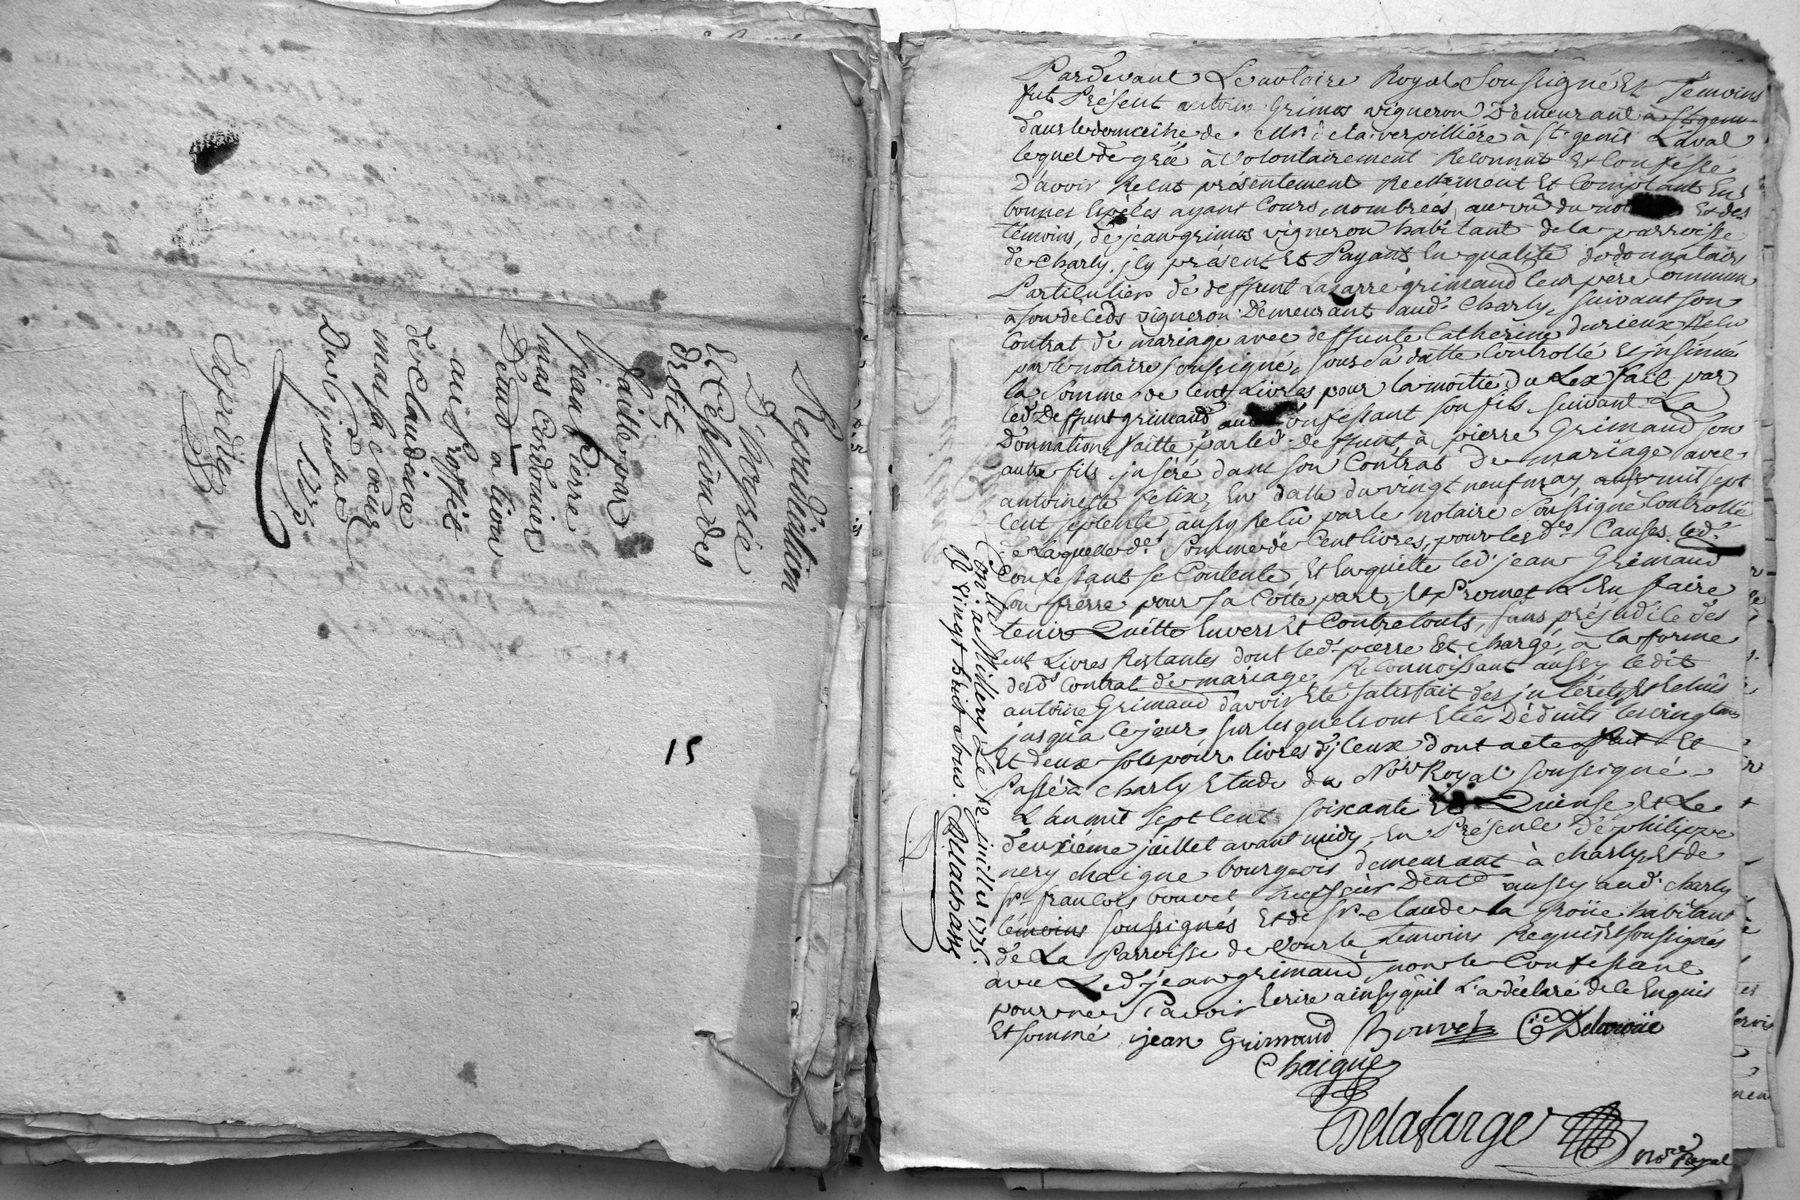 Répudiation
D'hoyrie
Et Cession des
droit
faitte par
Jean Pierre
mas Cordonier
Demt a lion
au Proffit
de Claudine
mas sa coeur
Du
1775
Expediée
15
Pardevant Le notaire Royal Soussigné Et Témoins
fut Présent antoine Grimos vigneron Demeurant à St genis
dans le domaine de Mr de la verpilliére à St genis Laval
lequel dé gréé à Volontairement Reconnut Et Confessé
D'avoir Relus présentement Reellement Et Comptant En
bonnes Espéces ayant Cours, nombrees, au vû du not Et des
témoins, de jean grimos vigneron habitant de la parroisse
de Charly, jcy présent Et Payant En qualité de donnataire
Particulier de deffunt Lazarre grimaud leur pere Commun
a son décéds vigneron Demeurant aud. Charly, suivant son
Contrat de mariage avec deffunte Catherine durieux Relu
par le notaire soussigné, sous sa datte Controllé Et jnsinué
la somme de Cent Livres pour la moitié du Lex fait par
led. Deffunt grimaud aud Confessant son fils suivant La
Donnation faitte par led. deffunt à pierre Grimaud son
autre fils jnséré dans son Contrat de mariage avec
antoinette felix, En datte du vingt neuf may mil sept
Cent septente, aussy Relu par le notaire soussigné Controllé
de laquelle de. Somme de Cent livres, pour les des Causes led.
Confessant se Contente, Et En quitte led. jean Grimaud
son frere pour sa Cotte part, Et Promet L'En faire
tenir Quitte Envers Et Contre touts, sans préjudice des
Cent Livres Restantes dont led. pierre Est Chargé, à la forme
dud. Contrat de mariage, Reconnoissant aussy ledit
antoine Grimaud d'avoir Eté satisfait des jntéréts Echus
jusqu'à ce jour sur lesquels ont Eteé Déduits les vingtiemes
Et deux sols pour livres d'jceux dont acte fait Et
Passé à Charly Etude du Nore Royal soussigné
L'an mil sept cent soixante Quinse, Et Le
deuxiéme juillet avant midy, En Présence de philippe
nery chaigne bourgeois demeurant à charly, Et de
sr francois bouvet huissier Demt aussy aud. Charly
témoins soussignés Et de sr claude la Roüe habitant
de La Parroisse de Vourle, temoins Requis Et soussignés
avec Led. jean grimaud, non le Confessant
pour ne Scavoir Ecrire ainsy qu'il L'a déclaré de ce Enquis
Et sommé jean Grimaud Bouvet C Delaroüe
Chaigne
Delafarge
nore Royal
Conlé a Millery Le 12. juillet 1775.
R Vingt huit sous. Dellachass